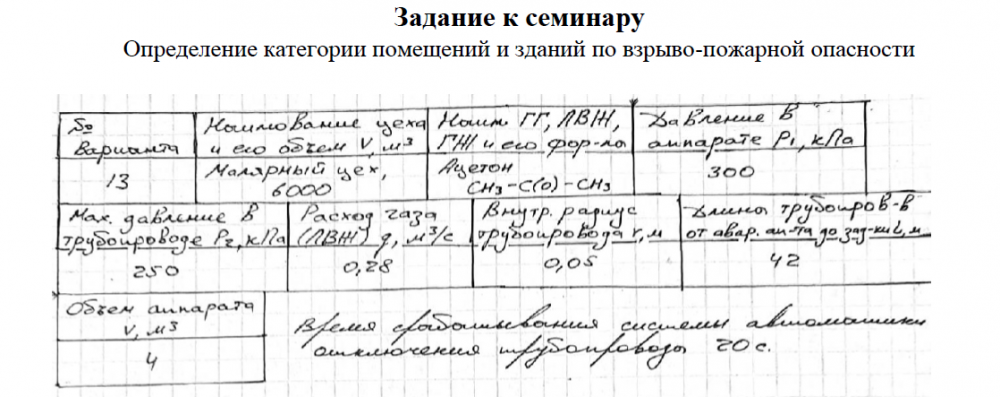 Задание к семинару
Определение категории помещений и зданий по взрыво-пожарной опасности
№ варианта
Наимование цеха и его объем V, м³
Наим. ГГ, ЛВЖ, ГЖ и его фор-лы
Давление в аппарате P₁, кПа
13
Малярный цех, 6000
Ацетон CH₃-C(O)-CH₃
300
Мах. давление в трубопроводе P₂, кПа
Расход газа (ЛВЖ) q, м³/с
Внутр. радиус трубопровода r, м
Длина трубопров-в от авар. ап-та до зад-ки L, м
250
0,28
0,05
42
Объем аппарата V, м³
4
Время срабатывания системы автоматики
отключения трубопровода 20 с.